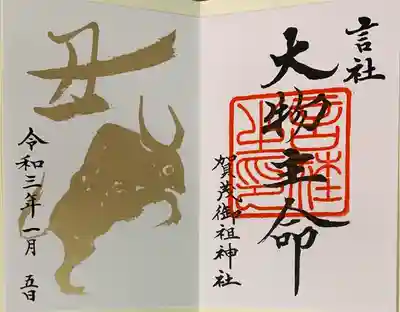 言社
大物主命
言社之印
賀茂御祖神社
丑
令和三年一月五日